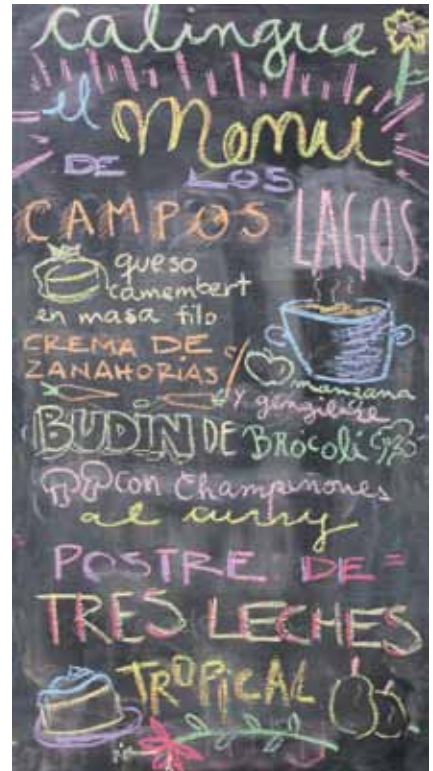 calingue
el
Menú
DE LOS
CAMPOS LAGOS
queso
camembert
en masa filo
CREMA DE
ZANAHORIAS
manzana
y gengibre
BUDÍN DE BROCOLi
con champiñones
al curry
POSTRE DE =
TRES LECHES
TROPICAL